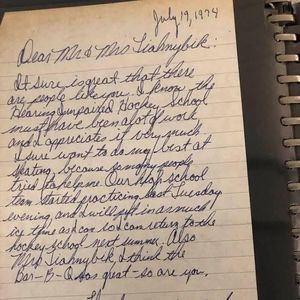 July 19, 1974
Dear Mr & Mrs Tiahnybik:
It sure is great that there
are people like you. I know the
Hearing Impaired Hockey School
must have been a lot of work
and I appreciate it very much.
I sure want to do my best at
skating, because so many people
tried to help me. Our high school
team started practicing last Tuesday
evening, and I will put in as much
ice time as I can so I can return to the
hockey school next summer. Also
Mrs Tiahnybik, I think the
Bar-B-Q was great - so are you.